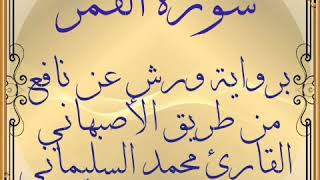 سورة القمر
برواية ورش عن نافع
من طريق الأصبهاني
القارئ محمد السليماني